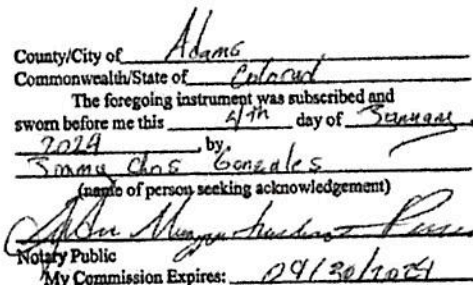 County/City of Adams
Commonwealth/State of Colorad
The foregoing instrument was subscribed and
sworn before me this 4th day of January,
2024, by
Chris Gonzales
(name of person seeking acknowledgement)
Notary Public
My Commission Expires: 09/30/2024